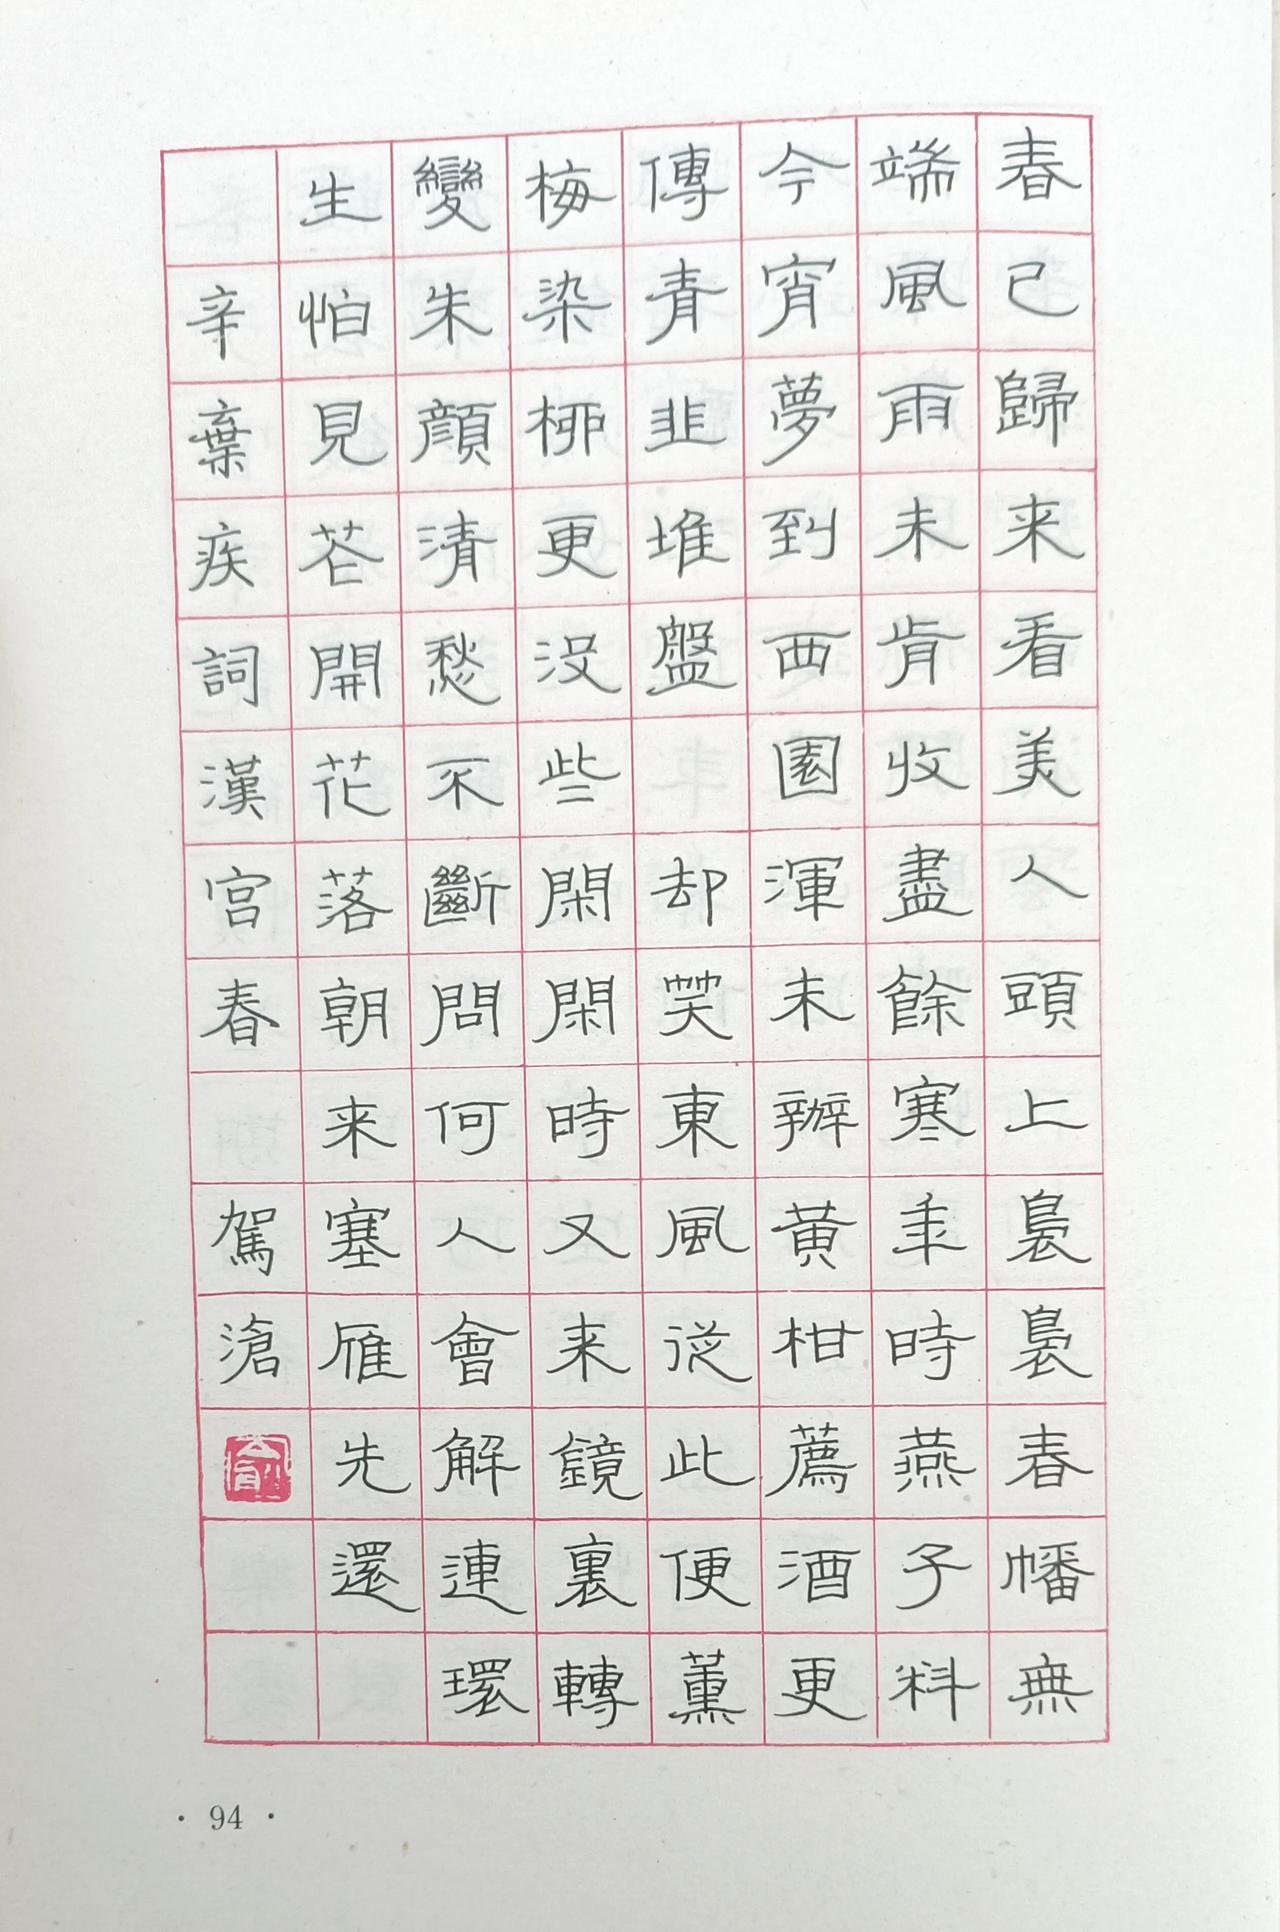 春已歸来看美人頭上裊裊春幡無
端風雨未肯收盡餘寒年時燕子料
今宵夢到西園渾未辦黃柑薦酒更
傳青韭堆盤 却笑東風從此便薰
梅染柳更没些閑閑時又来鏡裏轉
變朱顏清愁不斷問何人會解連環
生怕見花開花落朝来塞雁先還
辛棄疾詞漢宫春 駕滄
俞
· 94 ·